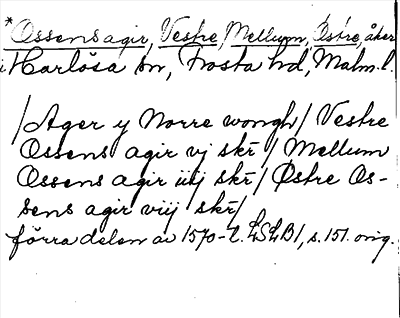 *Ossens agir, Vestre, Mellum, Østre, åker
i Harlösa sn, Frosta hd, Malm. l.
/Ager y Norre wongh/ Vestre
Ossens agir vj skr̄/ Mellum
Ossens agir iiij skr̄/ Østre Os-
sens agir viij skr̄/
förra delen av 1570-t. LSLB1, s. 151. orig.